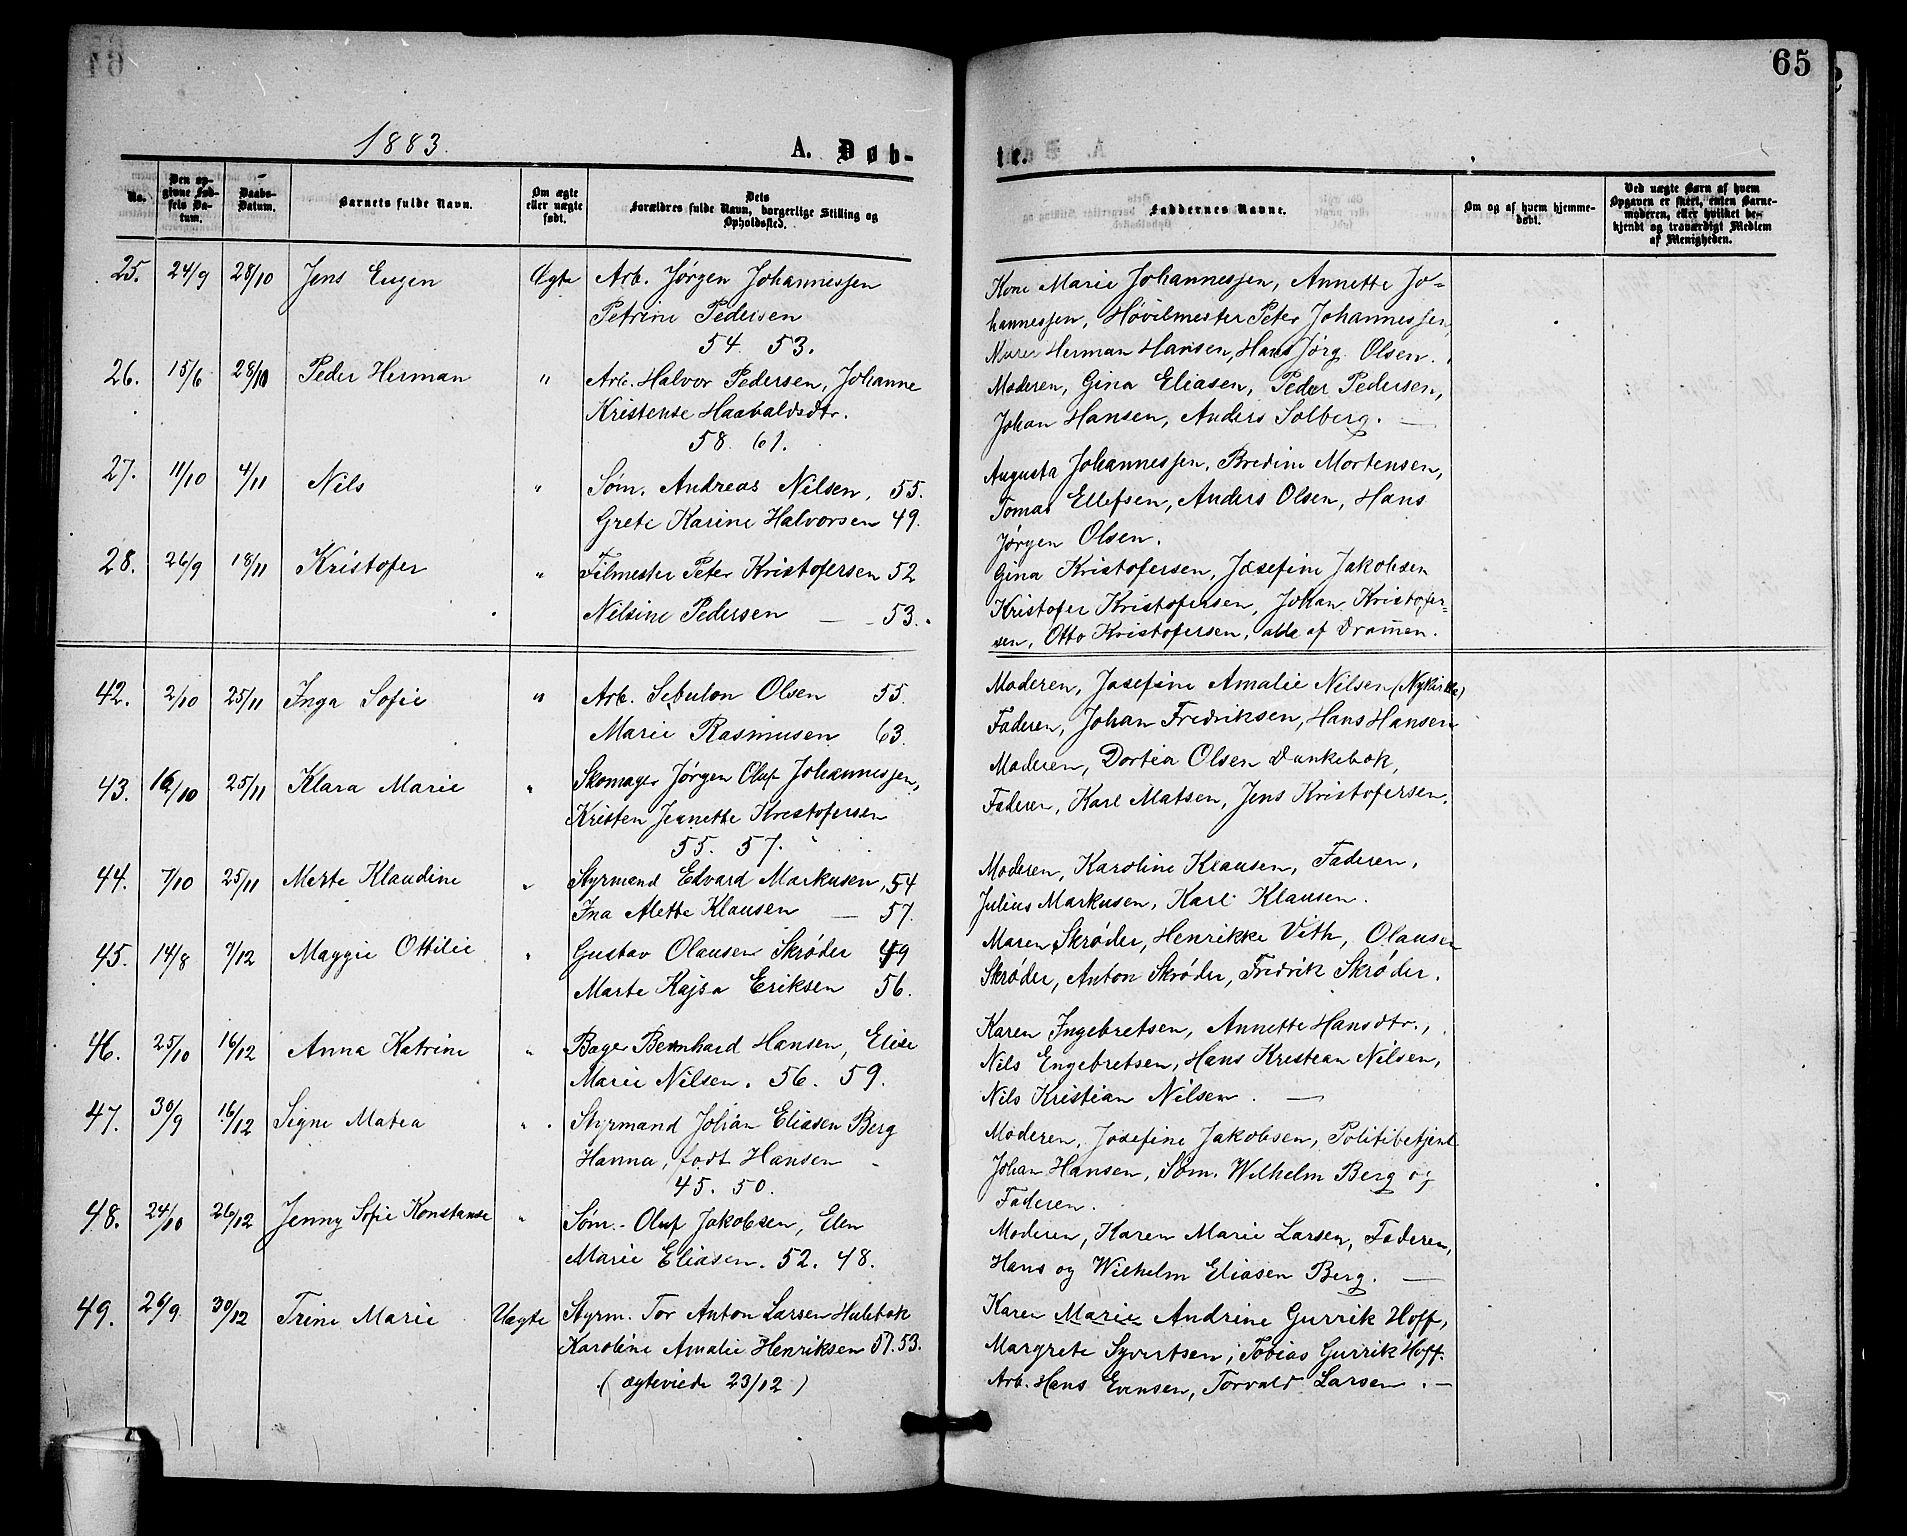 65
1883.
A. Døb-
te.
No.
Den opgivne Fødsels Datum.
Daabs-Datum.
Barnets fulde Navn.
Om ægte eller uægte født.
Dets Forældres fulde Navn, borgerlige Stilling og Opholdssted.
Faddernes Navne.
Om og af hvem hjemmedøbt.
Ved uægte Børn af hvem Opgaven er skeet, enten Barnemoderen, eller hvilket bekjendt og troværdigt Medlem af Menigheden.
25. 24/9 28/10 Jens Eugen Ægte Arb. Jørgen Johannessen
Petrine Pedersen
54. 53.
Kone Marie Johannessen, Annette Jo-
hannessen, Høvilmester Peter Johannessen,
Murer Herman Hansen, Hans Jørg. Olsen.
26. 15/6 28/10 Peder Herman " Arb. Halvor Pedersen, Johanne
Kristense Haabaldsdtr.
58. 61.
Moderen, Gina Eliasen, Peder Pedersen,
Johan Hansen, Anders Solberg. —
27. 11/10 4/11 Nils " Søm. Andreas Nilsen, 55.
Grete Karine Halvorsen 49.
Augusta Johannessen, Bredine Mortensen,
Tomas Ellefsen, Anders Olsen, Hans
Jørgen Olsen.
28. 26/9 18/11 Kristofer " Filmester Peter Kristofersen 52
Nilsine Pedersen — 53.
Gina Kristofersen, Josefine Jakobsen
Kristofer Kristofersen, Johan Kristofer-
sen, Otto Kristofersen, alle af Dramen.
42. 2/10 25/11 Inga Sofie " Arb. Sebulon Olsen 55.
Marie Rasmusen 63.
Moderen, Josefine Amalie Nilsen (Nykirke)
Faderen, Johan Fredriksen, Hans Hansen
43. 16/10 25/11 Klara Marie " Skomager Jørgen Oluf Johannessen,
Kristen Jeanette Kristofersen
55. 57.
Moderen, Dortea Olsen Dunkebæk,
Faderen, Karl Matsen, Jens Kristofersen.
44. 7/10 25/11 Merte Klaudine " Styrmand Edvard Markusen, 54
Ina Alette Klausen — 57.
Moderen, Karoline Klausen, Faderen,
Julius Markusen, Karl Klausen.
45. 14/8 7/12 Maggie Ottilie " Gustav Olausen Skrøder 49
Marte Kajsa Eriksen 56.
Maren Skrøder, Henrikke Vith, Olausen
Skrøder, Anton Skrøder, Fredrik Skrøder.
46. 25/10 16/12 Anna Katrine " Bager Bernhard Hansen, Elise
Marie Nilsen. 56. 59.
Karen Ingebretsen, Annette Hansdtr.,
Nils Engebretsen, Hans Kristian Nilsen,
Nils Kristian Nilsen. —
47. 30/9 16/12 Signe Matea " Styrmand Johan Eliasen Berg
Hanna, født Hansen
45. 50.
Moderen, Josefine Jakobsen, Politibetjent
Johan Hansen, Søm. Wilhelm Berg og
Faderen.
48. 24/10 26/12 Jenny Sofie Konstanse " Søm. Oluf Jakobsen, Elen
Marie Eliasen. 52. 48.
Moderen, Karen Marie Larsen, Faderen,
Hans og Wilhelm Eliasen Berg. —
49. 26/9 30/12 Trine Marie Uægte Styrm. Tor Anton Larsen Hulebak
Karoline Amalie Henriksen 57. 53.
( ægteviede 23/12 )
Karen Marie Andrine Gurrik Hoff,
Margrete Syvertsen, Tobias Gurrik Hoff.
Arb. Hans Evensen, Torvald Larsen. —